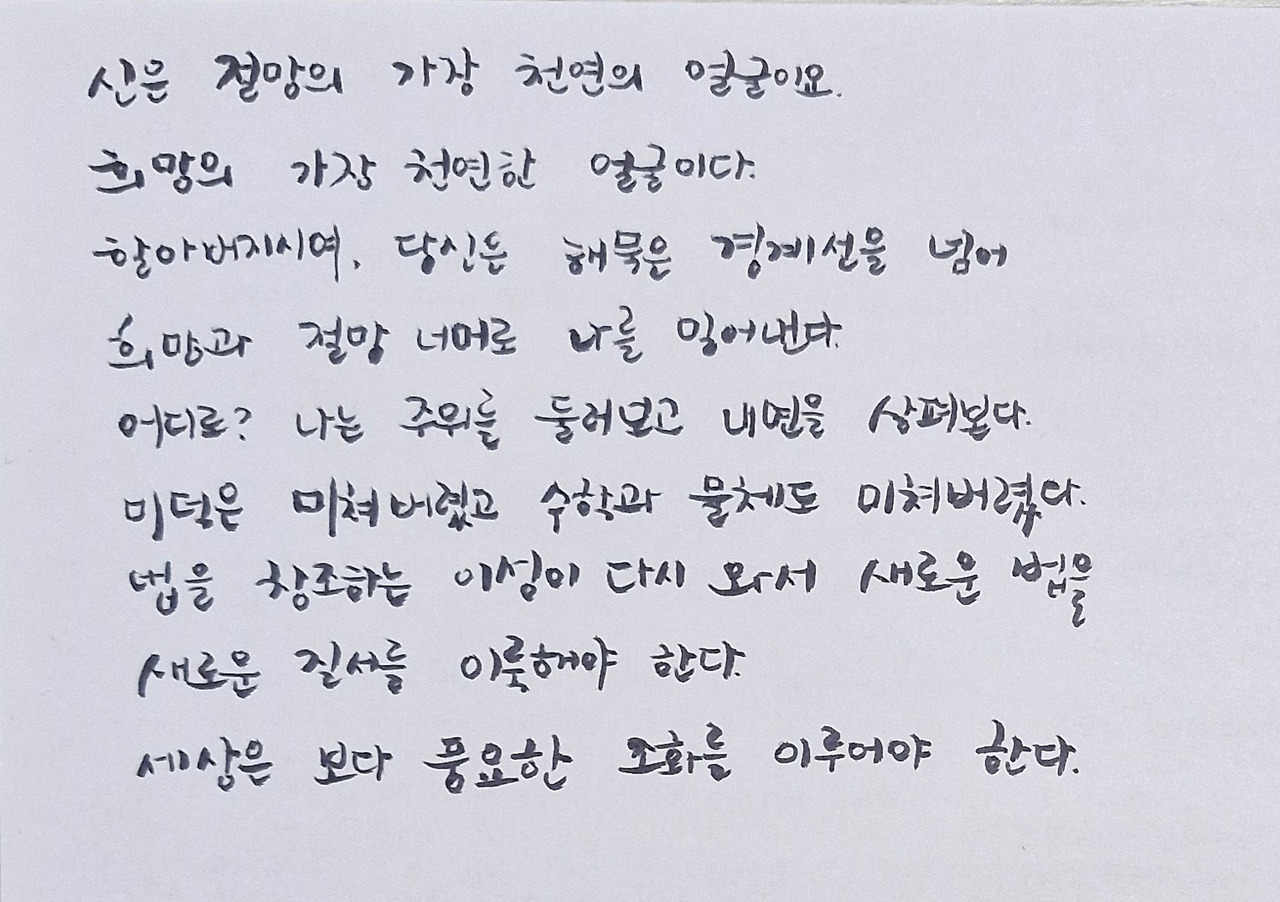 신은 절망의 가장 천연의 얼굴이요.
희망의 가장 천연한 얼굴이다.
할아버지시여, 당신은 해묵은 경계선을 넘어
희망과 절망 너머로 나를 밀어낸다.
어디로? 나는 주위를 둘러보고 내면을 살펴본다.
미덕은 미쳐버렸고 수학과 물체도 미쳐버렸다.
법을 창조하는 이성이 다시 와서 새로운 법을
새로운 질서를 이룩해야 한다.
세상은 보다 풍요한 조화를 이루어야 한다.